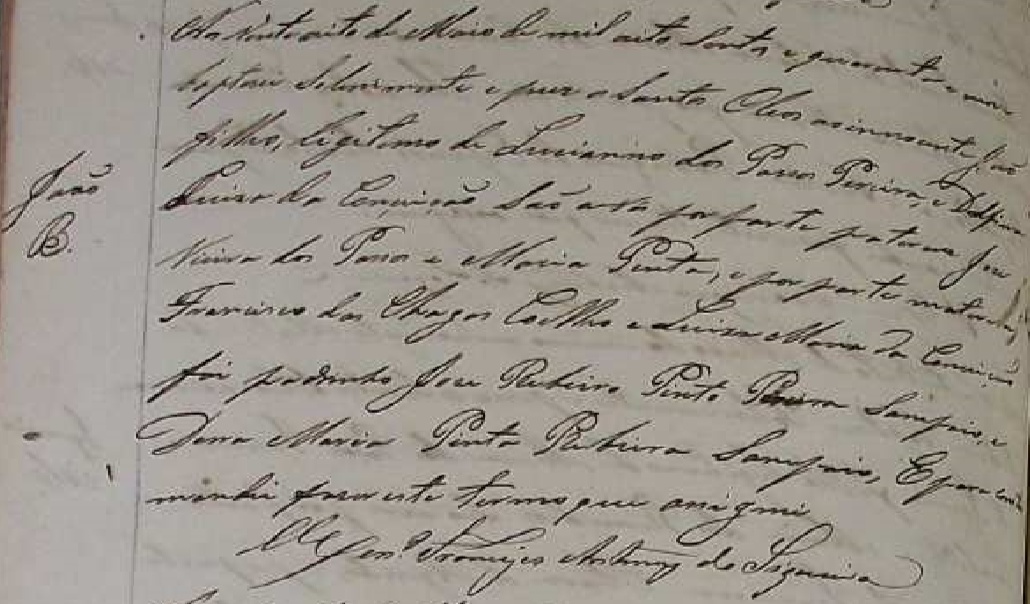 Aos vinte oito de Maio de mil oito centos e quarenta e
baptisei solenimente e puz os Santos Oleos ao innocente João
filho legitimo de Lucianno dos Passos Pereira, e Delfina
João
Luiza da Conceição São avós por parte paterna José
B.
Vieira dos Passos e Maria Pinta, e por parte materna
Francisco das Chagas Coelho e Luiza Maria da Conceição
foi padrinho José Ribeiro Pinto Sampaio, e
Dona Maria Pinta Ribeira Sampaio, E para
mandei fazer este termo que assignei
Antunes de Siqueira